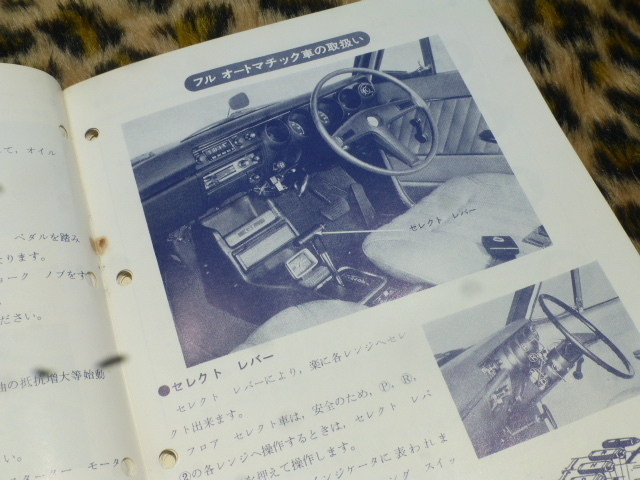 て, オイル
ペダルを踏み
ります。
ョーク ノブをす
ださい。
の抵抗増大等始動
い。
モータ
フル オートマチック車の取扱い
セレクト レバー
●セレクト レバー
セレクト レバーにより, 楽に各レンジへセレ
クト出来ます。
フロア セレクト車は, 安全のため, Ⓟ, Ⓡ,
②の各レンジへ操作するときは, セレクト レバ
を抑えて操作します。
インジケータに表われま
ング スイッ